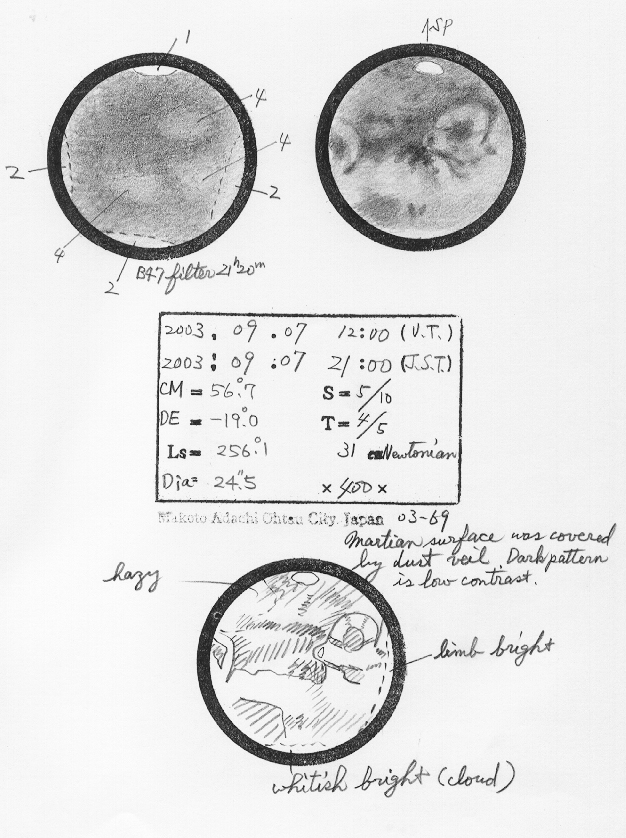 1
4
4
2
2
4
2
B47 filter 21h20m
↑SP
2003. 09 .07 12:00 (U.T.)
2003: 09 :07 21:00 (J.S.T.)
CM = 56.°7 S = 5/10
DE = -19.°0 T = 4/5
Ls = 256.°1 31 cm Newtonian
Dia= 24."5 × 400 ×
Makoto Adachi Ohtsu City, Japan 03-69
Martian surface was covered
by dust veil. Dark pattern
is low contrast.
hazy
limb bright
whitish bright (cloud)